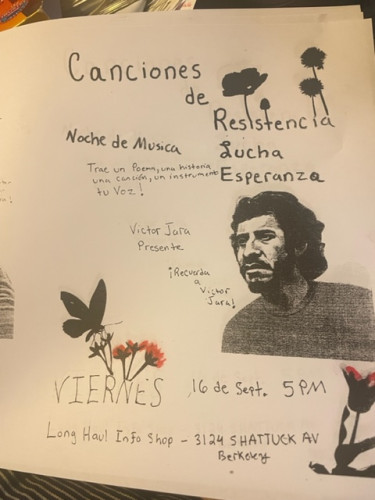 Canciones
de
Resistencia
Lucha
Esperanza
Noche de Musica
Trae un Poema, una historia
una canción, un instrumento
tu Voz!
Victor Jara
Presente
¡Recuerda
a
Victor
Jara!
VIERNES 16 de Sept. 5PM
Long Haul Info Shop - 3124 SHATTUCK AV
Berkeley